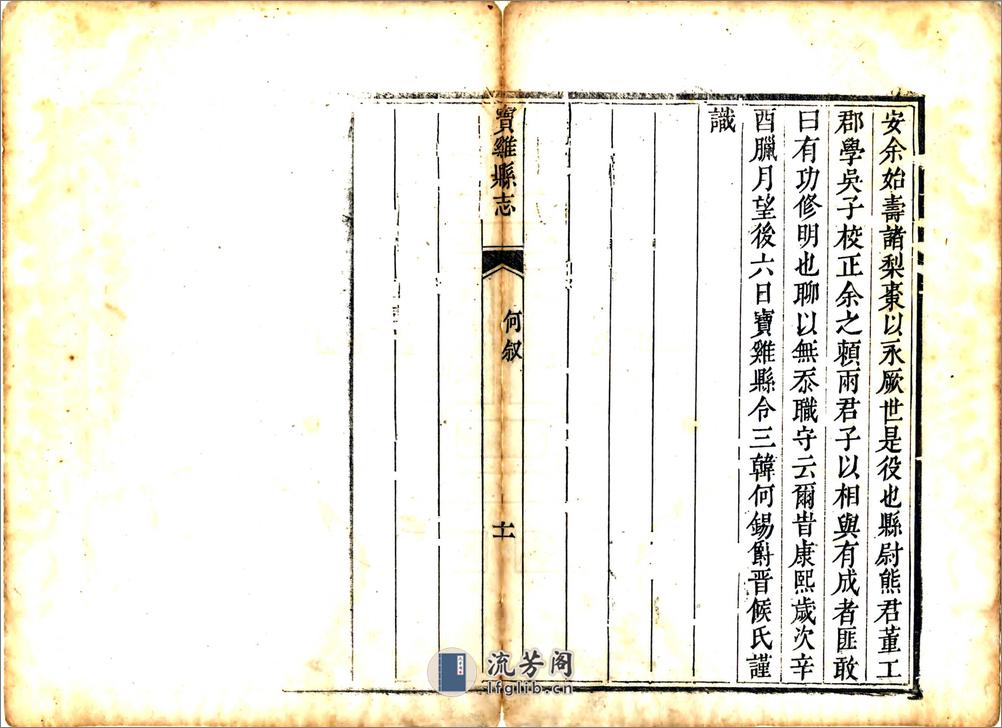 安余始壽諸梨棗以永厥世是役也縣尉熊君董工
郡學吳子校正余之頼兩君子以相與有成者匪敢
曰有功修明也聊以無忝職守云爾昔康熙歲次辛
酉臘月望後六日寶雞縣令三韓何錫爵晋候氏謹
識
寶雞縣志
何叙
十一
流芳阁
lfglib.cn